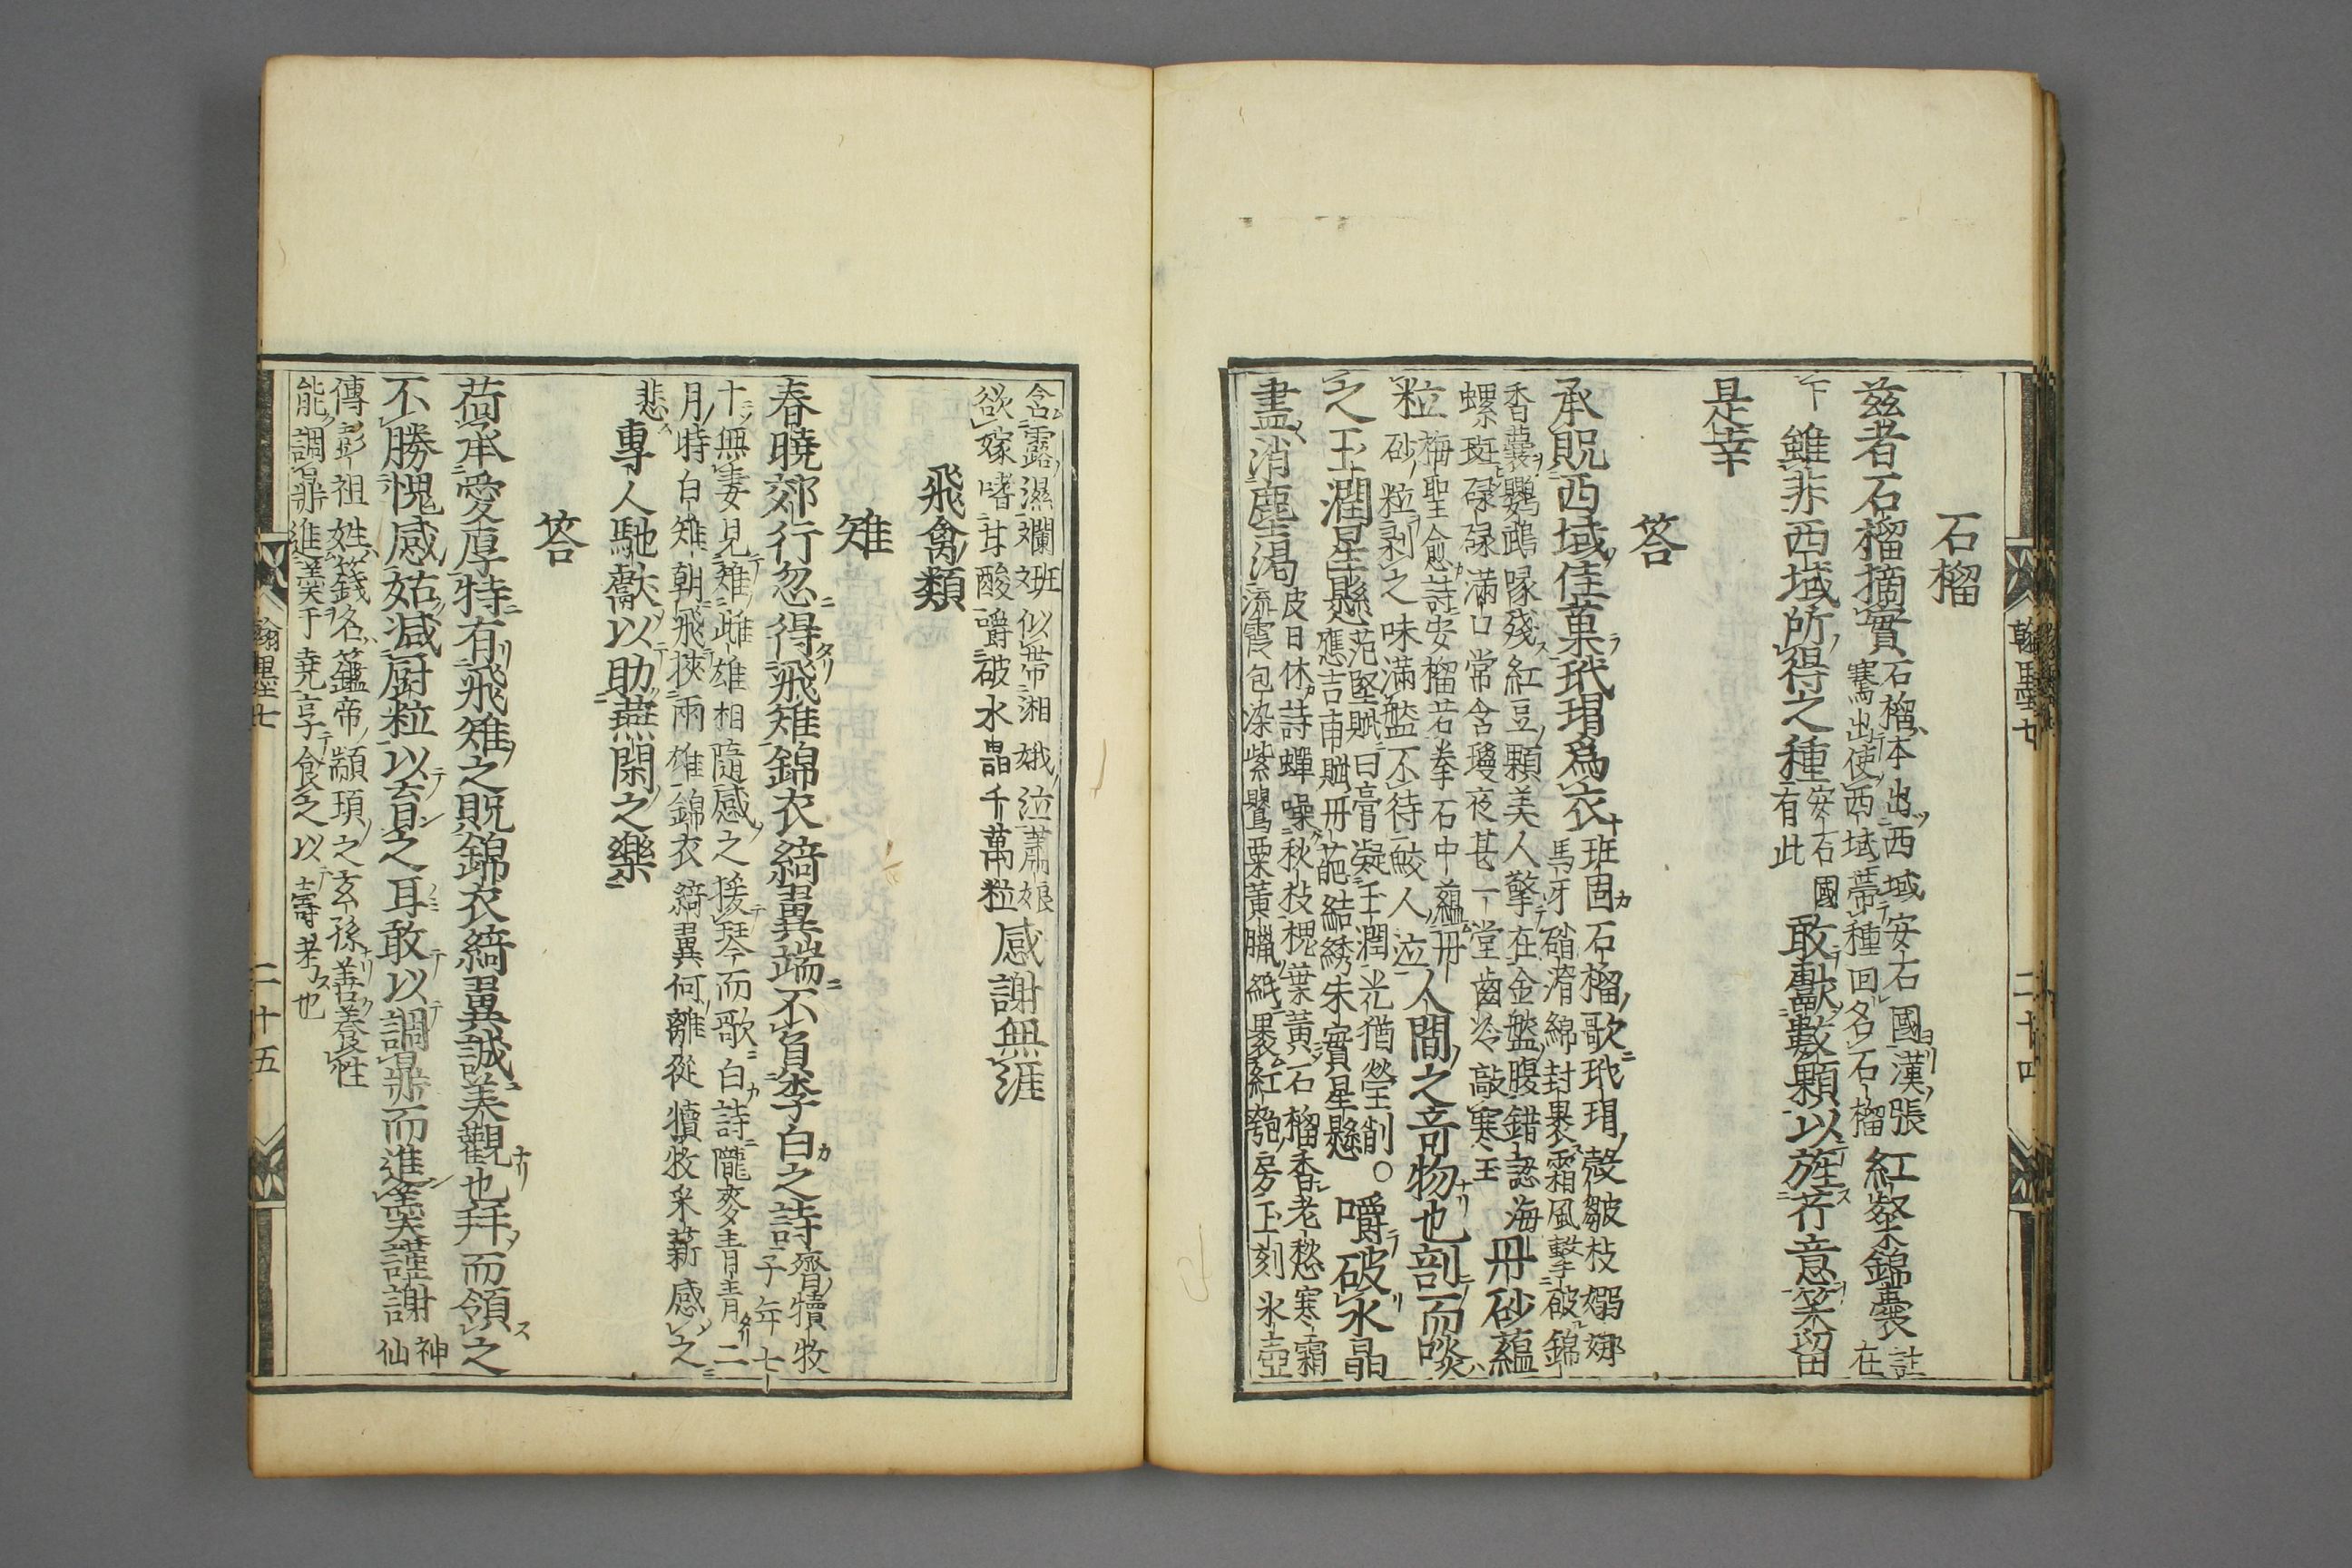 石榴
茲者石榴摘實
石榴本出西域安石國漢張
騫出使西域帶種回名石榴
紅粲錦囊
註
在
下
雖非西域所得之種
安石國
有此
敢獻數顆以旌芹意笑留
是幸
答
承貺西域佳菓玳瑁為衣
班固石榴歌玳瑁殼皺枝嫋娜
馬牙硝滑綿封裹霜風擊破錦
香囊鸚鵡啄殘紅豆顆美人擎在金盤腹錯認海
螺斑碌碌滿口常含璦夜甚一堂齒冷敲寒玉
丹砂蘊
粒
梅聖俞詩安榴若拳石中蘊丹
砂粒剥之味滿盤不待鮫人泣
人間之竒物也剖而啖
之玉潤星懸
范堅賦曰膏凝玉潤光猶瑩削○
應吉甫賦丹葩結綉朱實星懸
嚼破氷晶
盡消塵渴
皮日休詩蟬噪秋枝槐葉黃石榴香老愁寒霜
流霞包染紫鸎粟黃臘紙裹紅匏房玉刻氷壺
翰墨七
二十四
含露濕斕斑似帶湘娥泣蕭娘
欲嫁嗜甘酸嚼破水晶千萬粒
感謝無涯
飛禽類
雉
春曉郊行忽得飛雉錦衣綺翼端不負李白之詩
齊犢牧
子年七
十無妻見雉雌雄相隨感之援琴而歌白詩隴麥青青二
月時白雉朝飛挾兩雌錦衣綺翼何離從犢牧采薪感之
悲
專人馳獻以助燕閑之樂
答
荷承愛厚特有飛雉之貺錦衣綺翼誠美觀也拜而領之
不勝愧感姑減厨粒以答貺之耳敢以調鼎而進笑謹謝
神
仙
傳彭祖姓籛名鏗帝顓頊之玄孫善養性
能調鼎進羹于堯享食之以壽考也
翰墨七
二十五